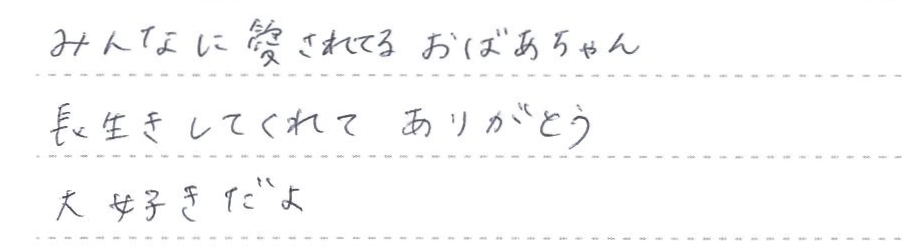 みんなに愛されてる おばあちゃん
長生きしてくれて ありがとう
大好きだよ